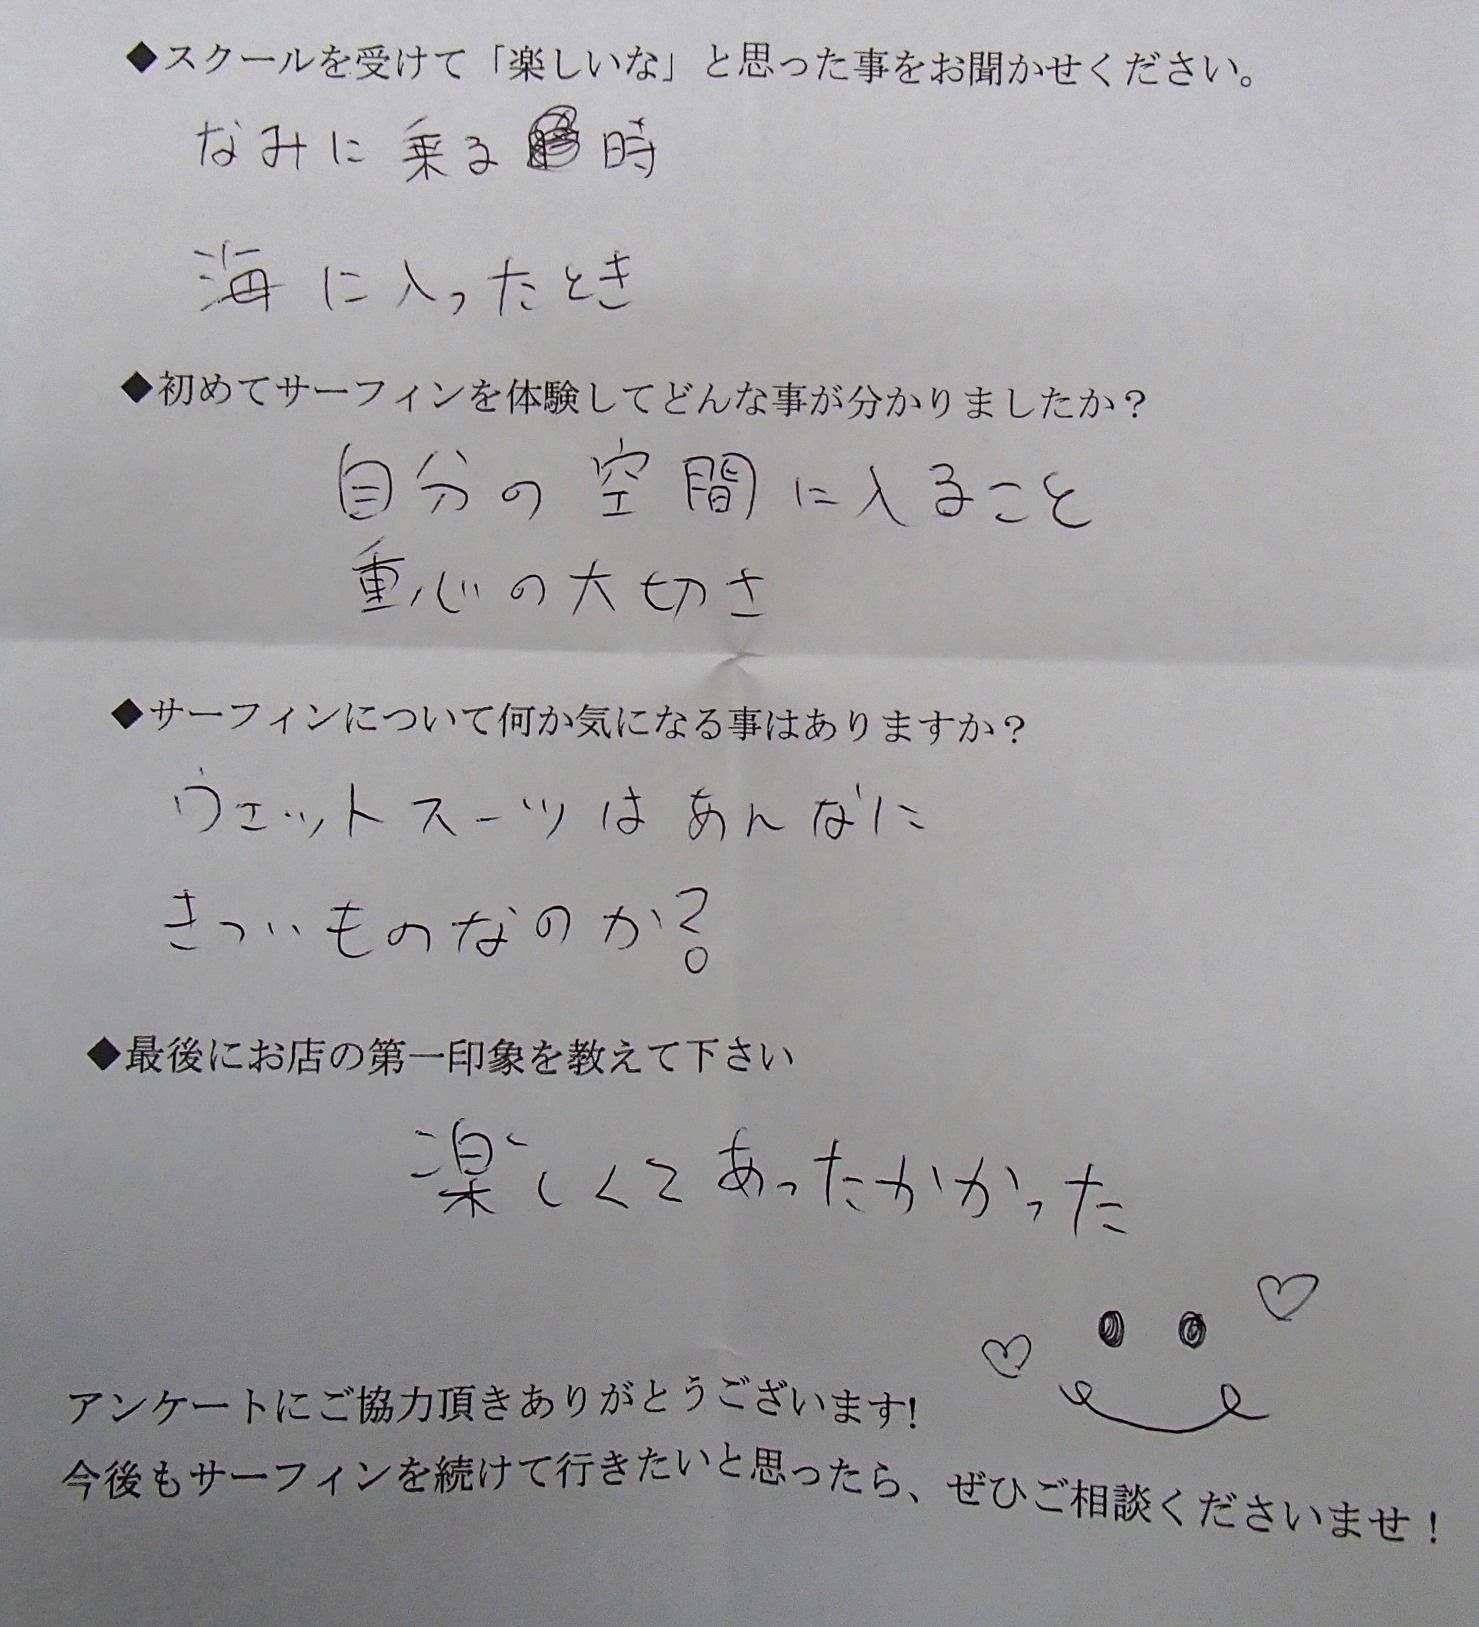 ◆スクールを受けて「楽しいな」と思った事をお聞かせください。
なみに乗る時
海に入ったとき
◆初めてサーフィンを体験してどんな事が分かりましたか？
自分の空間に入ること
重心の大切さ
◆サーフィンについて何か気になる事はありますか？
ウェットスーツはあんなに
きついものなのか？
◆最後にお店の第一印象を教えて下さい
楽しくてあったかかった
アンケートにご協力頂きありがとうございます!
今後もサーフィンを続けて行きたいと思ったら、ぜひご相談くださいませ！